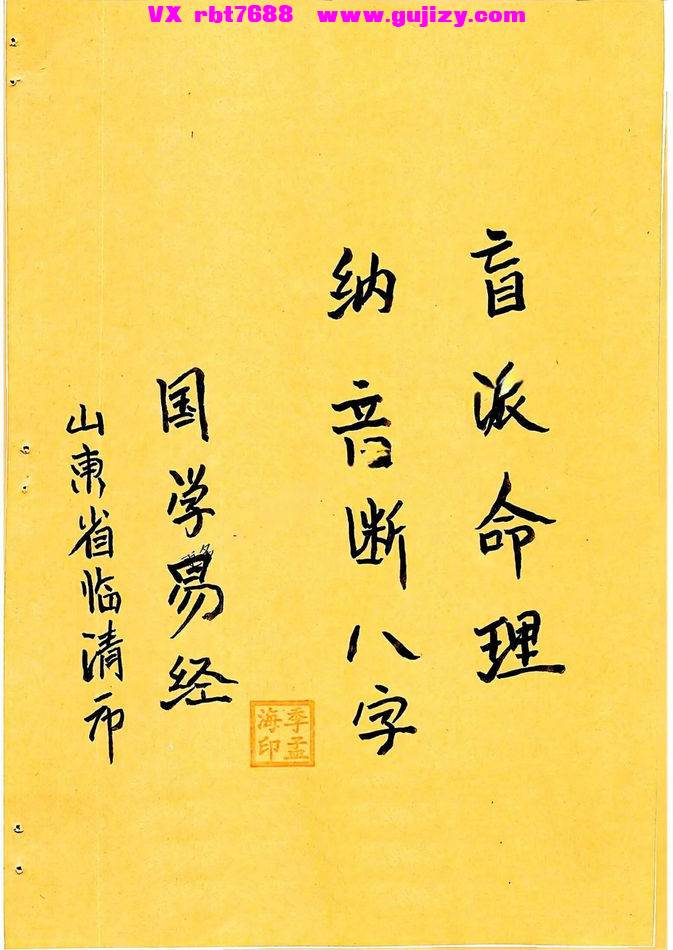 VX rbt7688 www.gujizy.com
盲派命理
纳音断八字
国学易经
山东省临清市
季孟海印